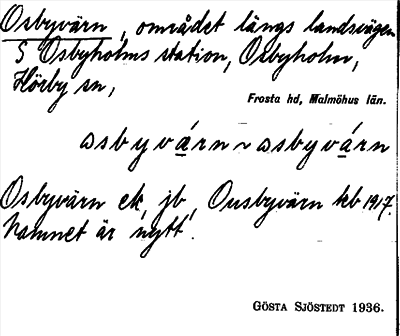 Osbyvärn, området längs landsvägen
S Osbyholms station, Osbyholm,
Hörby sn,
Frosta hd, Malmöhus län.
åsbyvárn ~ åsbyvárn
Osbyvärn ek, jb, Ousbyvärn kb 1917.
Namnet är nytt.
GÖSTA SJÖSTEDT 1936.